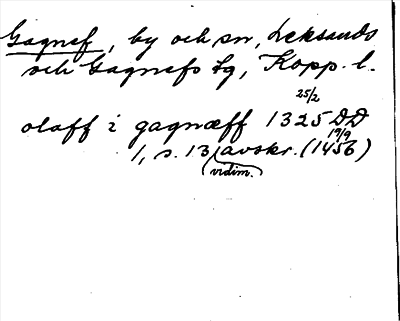 Gagnef, by och sn, Leksands
och Gagnefs tg, Kopp. l.
25/2
olaff i gagnæff 1325 DD
19/9
1, s. 131 avskr. (1456)
vidim.